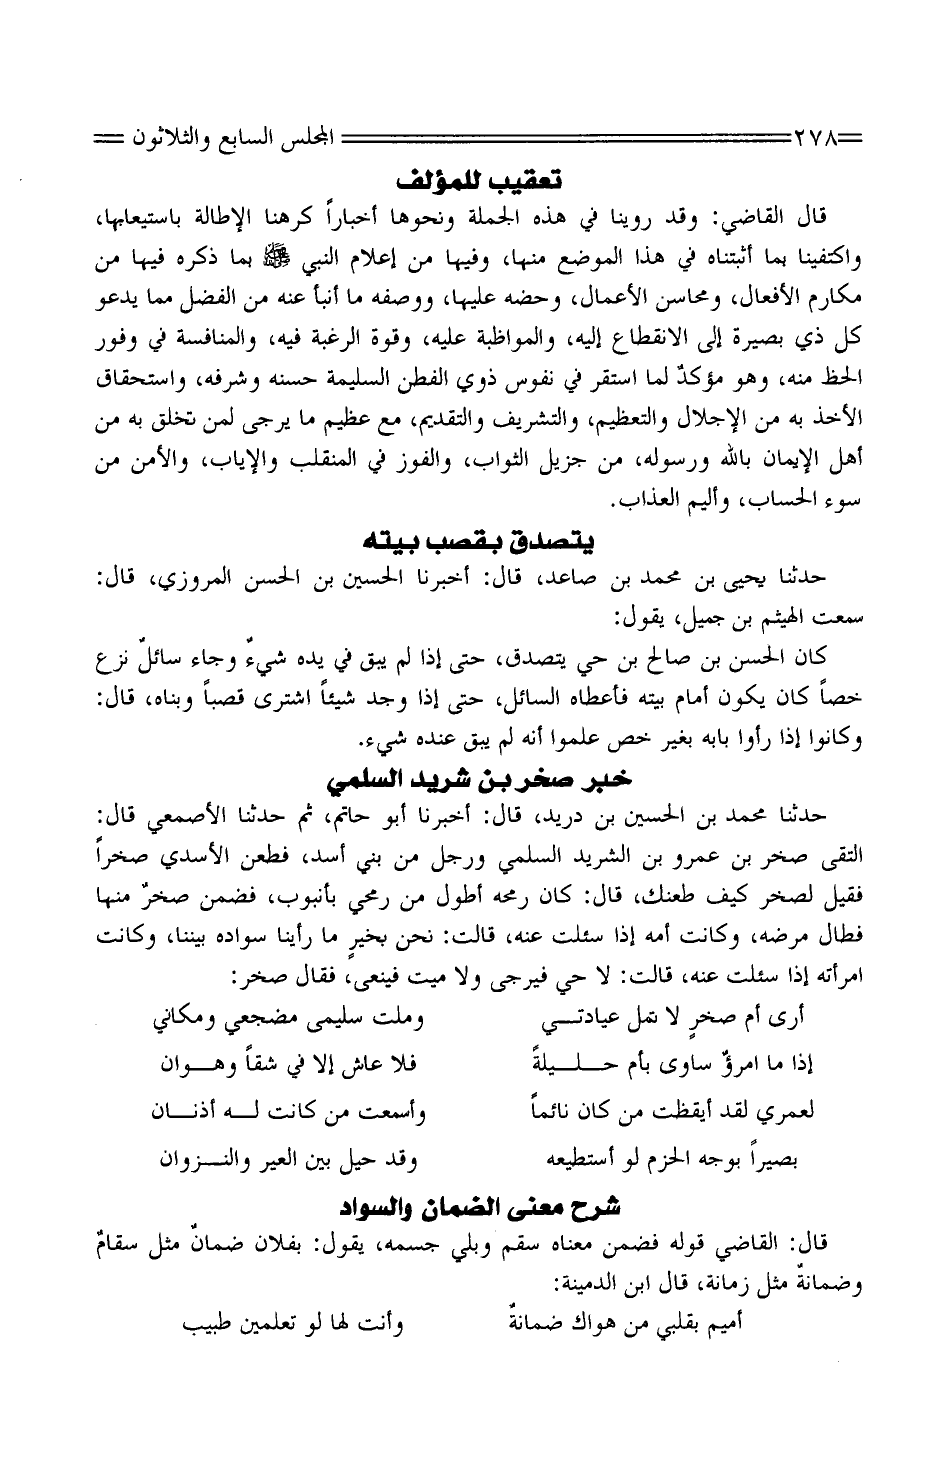 ٢٧٨ المجلس السابع والثلاثون
تعقيب للمؤلف
قال القاضي: وقد روينا في هذه الجملة ونحوها أخباراً كرهنا الإطالة باستيعابها،
واكتفينا بما أثبتناه في هذا الموضع منها، وفيها من إعلام النبي ﷺ بما ذكره فيها من
مكارم الأفعال، ومحاسن الأعمال، وحضه عليها، ووصفه ما أنبأ عنه من الفضل مما يدعو
كل ذي بصيرة إلى الانقطاع إليه، والمواظبة عليه، وقوة الرغبة فيه، والمنافسة في وفور
الحظ منه، وهو مؤكدٌ لما استقر في نفوس ذوي الفطن السليمة حسنه وشرفه، واستحقاق
الأخذ به من الإجلال والتعظيم، والتشريف والتقديم، مع عظيم ما يرجى لمن تخلق به من
أهل الإيمان بالله ورسوله، من جزيل الثواب، والفوز في المنقلب والإياب، والأمن من
سوء الحساب، وأليم العذاب.
يتصدق بقصب بيته
حدثنا يحيى بن محمد بن صاعد، قال: أخبرنا الحسين بن الحسن المروزي، قال:
سمعت الهيثم بن جميل، يقول:
كان الحسن بن صالح بن حي يتصدق، حتى إذا لم يبق في يده شيءٌ وجاء سائلٌ نزع
خصاً كان يكون أمام بيته فأعطاه السائل، حتى إذا وجد شيئاً اشترى قصباً وبناه، قال:
وكانوا إذا رأوا بابه بغير خص علموا أنه لم يبق عنده شيء.
خبر صخر بن شريد السلمي
حدثنا محمد بن الحسين بن دريد، قال: أخبرنا أبو حاتم، ثم حدثنا الأصمعي قال:
التقى صخر بن عمرو بن الشريد السلمي ورجل من بني أسد، فطعن الأسدي صخراً
فقيل لصخر كيف طعنك، قال: كان رمحه أطول من رمحي بأنبوب، فضمن صخرٌ منها
فطال مرضه، وكانت أمه إذا سئلت عنه، قالت: نحن بخيرٍ ما رأينا سواده بيننا، وكانت
امرأته إذا سئلت عنه، قالت: لا حي فيرجى ولا ميت فينعى، فقال صخر:
أرى أم صخرٍ لا تمل عيادتـــي وملت سليمى مضجعي ومكاني
إذا ما امرؤٌ ساوى بأم حـــلـــيلةً فلا عاش إلا في شقاً وهـــوان
لعمري لقد أيقظت من كان نائماً وأسعت من كانت لـــه أذنـــان
بصيراً بوجه الحزم لو أستطيعه وقد حيل بين العير والنـــزوان
شرح معنى الضمان والسواد
قال: القاضي قوله فضمن معناه سقم وبلي جسمه، يقول: بفلان ضمانٌ مثل سقامٌ
وضمانةٌ مثل زمانة، قال ابن الدمينة:
أميم بقلبي من هواك ضمانةٌ وأنت لها لو تعلمين طبيب